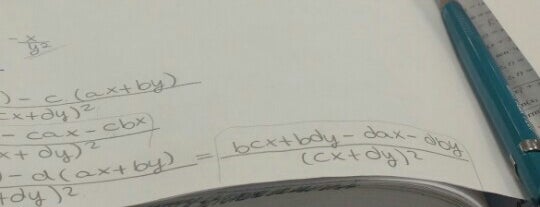 - x/y²
) - c.(ax+by)
cx+dy)²
- cax - cbx
x + dy)²
) - d(ax+by) / +dy)² = bcx+bdy - dax - dby / (cx+dy)²